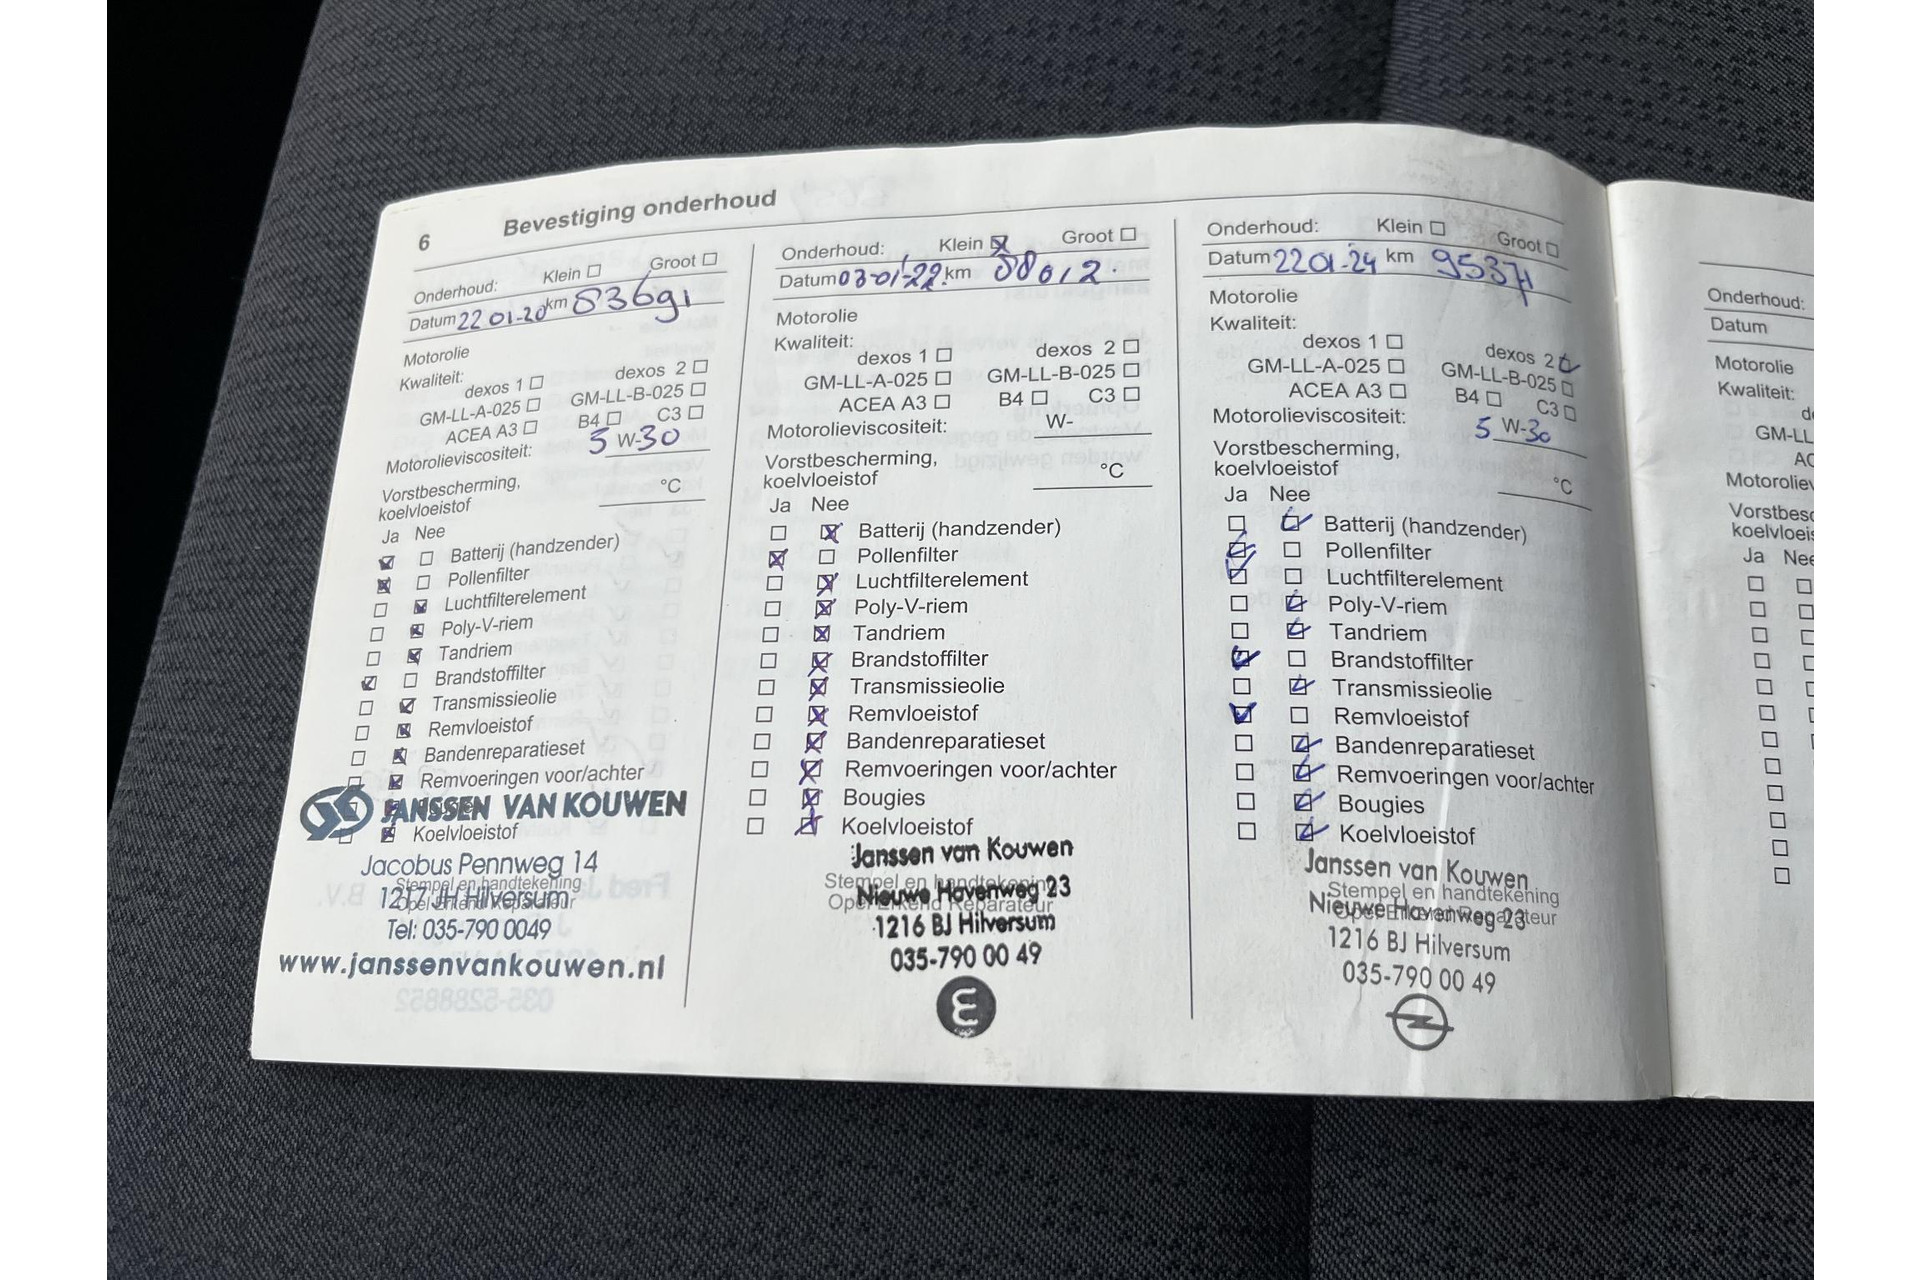 6 Bevestiging onderhoud
Onderhoud: Klein Groot
Datum 22 01-20 km 83691
Motorolie
Kwaliteit:
dexos 1 dexos 2
GM-LL-A-025 GM-LL-B-025
ACEA A3 B4 C3
Motorolieviscositeit: 5 W-30
Vorstbescherming,
koelvloeistof °C
Ja Nee
Batterij (handzender)
Pollenfilter
Luchtfilterelement
Poly-V-riem
Tandriem
Brandstoffilter
Transmissieolie
Remvloeistof
Bandenreparatieset
Remvoeringen voor/achter
JANSSEN VAN KOUWEN
Koelvloeistof
Jacobus Pennweg 14
Stempel en handtekening
1217 JH Hilversum
Opel Erkend Reparateur
Tel: 035-790 0049
www.janssenvankouwen.nl
Onderhoud: Klein Groot
Datum 03-01-22 km 88012.
Motorolie
Kwaliteit:
dexos 1 dexos 2
GM-LL-A-025 GM-LL-B-025
ACEA A3 B4 C3
Motorolieviscositeit: W-
Vorstbescherming,
koelvloeistof °C
Ja Nee
Batterij (handzender)
Pollenfilter
Luchtfilterelement
Poly-V-riem
Tandriem
Brandstoffilter
Transmissieolie
Remvloeistof
Bandenreparatieset
Remvoeringen voor/achter
Bougies
Koelvloeistof
Janssen van Kouwen
Stempel en handtekening
Nieuwe Havenweg 23
Opel Erkend Reparateur
1216 BJ Hilversum
035-790 00 49
Onderhoud: Klein Groot
Datum 22 01-24 km 95371
Motorolie
Kwaliteit:
dexos 1 dexos 2
GM-LL-A-025 GM-LL-B-025
ACEA A3 B4 C3
Motorolieviscositeit: 5 W-30
Vorstbescherming,
koelvloeistof °C
Ja Nee
Batterij (handzender)
Pollenfilter
Luchtfilterelement
Poly-V-riem
Tandriem
Brandstoffilter
Transmissieolie
Remvloeistof
Bandenreparatieset
Remvoeringen voor/achter
Bougies
Koelvloeistof
Janssen van Kouwen
Stempel en handtekening
Nieuwe Havenweg 23
Opel Erkend Reparateur
1216 BJ Hilversum
035-790 00 49
Onderhoud:
Datum
Motorolie
Kwaliteit:
d
GM-LL
AC
Motorolie
Vorstbesc
koelvloeis
Ja Nee